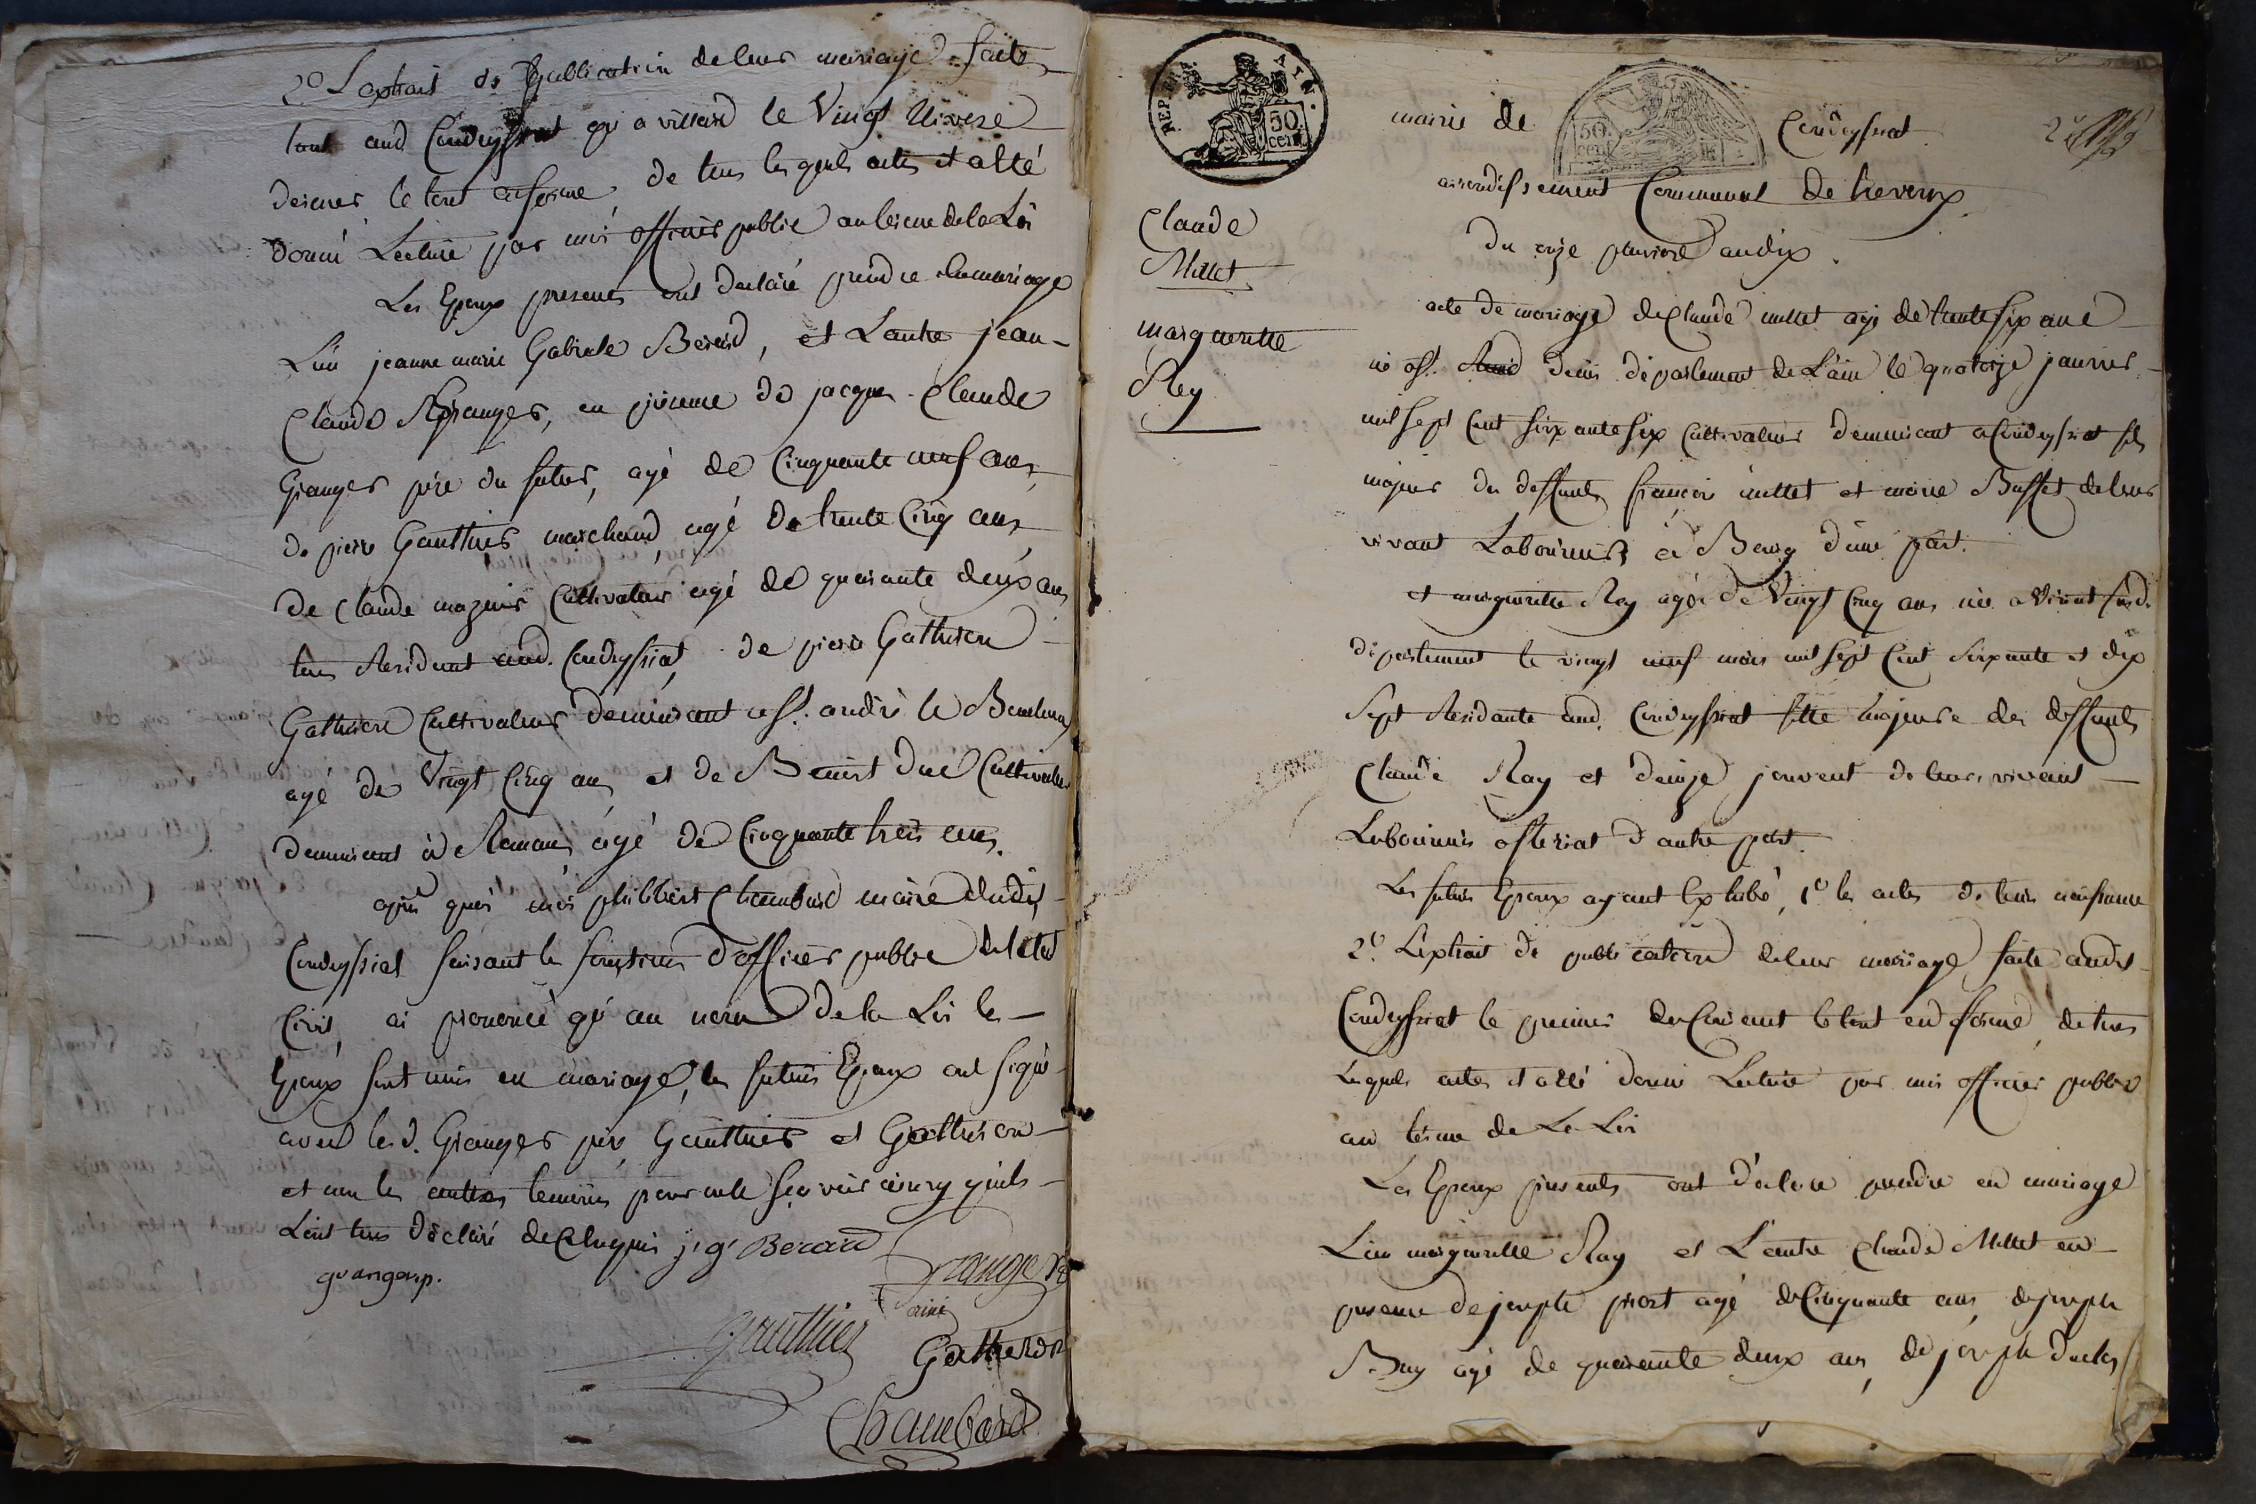 2º Lextrait de Publication de leur mariage faite
tant aud Condeyssiat qu'a villard le Vingt Nivose
dernier le tout enforme, de tous lesquels actes il a été
donné Lecture par moi officier public au terme de la Loi
Les Epoux presents ont declaré prendre en mariage
L'un jeanne marie Gabriele Berard, et L'autre jean-
Claude Granger, en présence de jacque Claude
Granger père du futur, agé de Cinquante neuf ans,
de pierre Gauthier marchand, agé de trente Cinq ans
de Claude mazuir Cultivateur agé de quarante deux ans
tous Résidant aud. Condeyssiat, de pierre Gatheron
Gatheron Cultivateur demeurant a St. andré le
agé de Vingt Cinq ans et de Benoist duc Cultivateur
demeurant à Romans agé de Cinquante trois ans.
après quoi moi philibert Chambard maire dudit
Condeyssiat faisant les fonctions d'officier public de l'état
Civil, ai prononcé qu'au nom de la Loi les
Epoux sont unis en mariage, les futurs Epoux ont signé
avec les d. Granger père, Gauthier et Gatheron
et non les autres temoins pour ne le sçavoir ainsy qu'ils
L'ont tous déclaré de Ce requis j. g. Berard
grangerp. Granger
ainé
gauthier Gatheron
Chambard
REP. FRA. AYN.
50 cent
50 cent
mairie de Condeyssiat
arrondissement Communal de trevoux
Du onze pluviose an dix.
Claude
Millet
margueritte
Rey
acte de mariage de Claude millet agé de trente six ans
né a St. Denis département de L'ain le quatorze janvier
mil sept Cent soixante six Cultivateur demeurant a Condeyssiat fils
majeur des deffunts françois millet et marie Buffet de leur
vivant Laboureurs à Bourg d'une part.
et marguerite Rey agée de Vingt Cinq ans née a
département le vingt neuf mars mil sept Cent soixante et dix
Sept Résidante aud. Condeyssiat fille majeure des deffunts
Claude Ray et denize jouvent de leurs vivant
Laboureurs d'autre part.
Les futurs Epoux ayant Exhibé, 1º les actes de leurs naissance
2º L'extrait de publication de leur mariage faite audit
Condeyssiat le premier du Courant le tout en forme, de tous
lesquels actes il a été donné Lecture par moi officier public
au terme de La Loi
Les Epoux presents ont déclaré prendre en mariage
L'un marguerite Ray et L'autre Claude Millet en
presence de joseph priost agé de Cinquante ans, de joseph
Buy agé de quarante deux ans, de joseph duclos